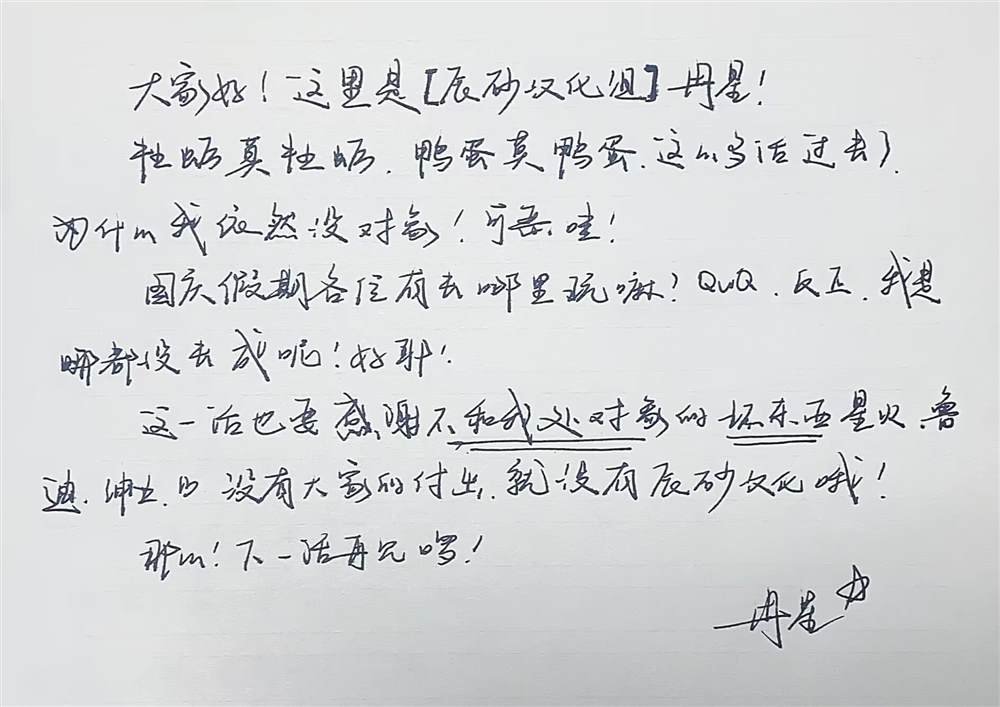 大家好！这里是[辰砂汉化组]冉星！
牡蛎莫牡蛎，鸭蛋莫鸭蛋，这么多话过去了，
为什么我依然没对象！可恶哇！
国庆假期各位有去哪里玩嘛？QwQ，反正，我是
哪都没去成呢！好耶！
这一话也要感谢不和我处对象的坏东西星火、鲁
迪、绅士、日 没有大家的付出，就没有辰砂汉化哦！
那么！下一话再见啰！
冉星